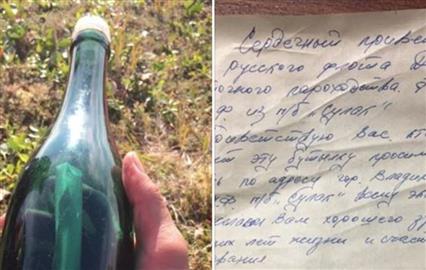 Сердечный приве
русского флота Д
очного пароходства.
из п/б „Сулак"
риветствую Вас, кт
ет эту бутылку просим
ь по адресу гор. Влади
п/б „Сулак" всему эк
Вам хорошего з
их лет жизни и счаст